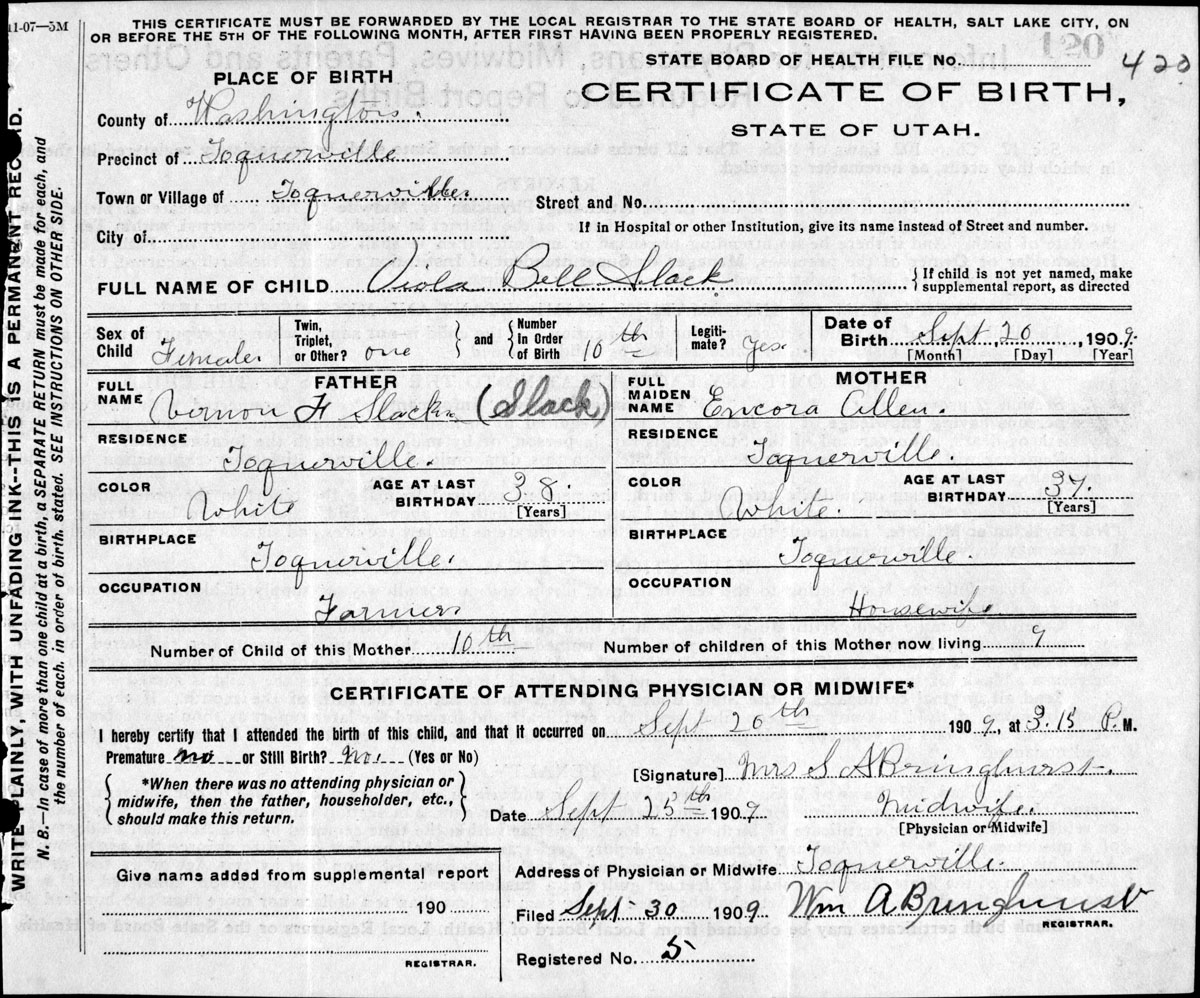 11-07—5M
THIS CERTIFICATE MUST BE FORWARDED BY THE LOCAL REGISTRAR TO THE STATE BOARD OF HEALTH, SALT LAKE CITY, ON
OR BEFORE THE 5TH OF THE FOLLOWING MONTH, AFTER FIRST HAVING BEEN PROPERLY REGISTERED.
120
STATE BOARD OF HEALTH FILE No. 420
CERTIFICATE OF BIRTH,
STATE OF UTAH.
PLACE OF BIRTH
County of Washington.
Precinct of Toquerville
Town or Village of Toquerville.
Street and No.
If in Hospital or other Institution, give its name instead of Street and number.
City of
FULL NAME OF CHILD Viola Bell Slack
If child is not yet named, make supplemental report, as directed
Sex of Child Female
Twin, Triplet, or Other? one
and
Number In Order of Birth 10th
Legiti-mate? Yes
Date of Birth Sept 20, 1909.
[Month] [Day] [Year]
FATHER
FULL NAME Vernon F Slack (Slack)
RESIDENCE
Toquerville.
COLOR White
AGE AT LAST BIRTHDAY 38.
[Years]
BIRTHPLACE
Toquerville.
OCCUPATION
Farmer
MOTHER
FULL MAIDEN NAME Encora Allen.
RESIDENCE
Toquerville.
COLOR White.
AGE AT LAST BIRTHDAY 37.
[Years]
BIRTHPLACE
Toquerville
OCCUPATION
Housewife
Number of Child of this Mother 10th
Number of children of this Mother now living 9
CERTIFICATE OF ATTENDING PHYSICIAN OR MIDWIFE*
I hereby certify that I attended the birth of this child, and that it occurred on Sept 20th 1909, at 3.15 P.M.
Premature no or Still Birth? No. (Yes or No)
*When there was no attending physician or
midwife, then the father, householder, etc.,
should make this return.
[Signature] Mrs S A Bringhurst.
Date Sept 25th 1909
Midwife.
[Physician or Midwife]
Give name added from supplemental report
190
REGISTRAR.
Address of Physician or Midwife Toquerville.
Filed Sept 30 1909
Wm A Bringhurst
REGISTRAR.
Registered No. 5
WRITE PLAINLY, WITH UNFADING INK--THIS IS A PERMANENT RECORD.
N. B.—In case of more than one child at a birth, a SEPARATE RETURN must be made for each, and
the number of each, in order of birth, stated. SEE INSTRUCTIONS ON OTHER SIDE.